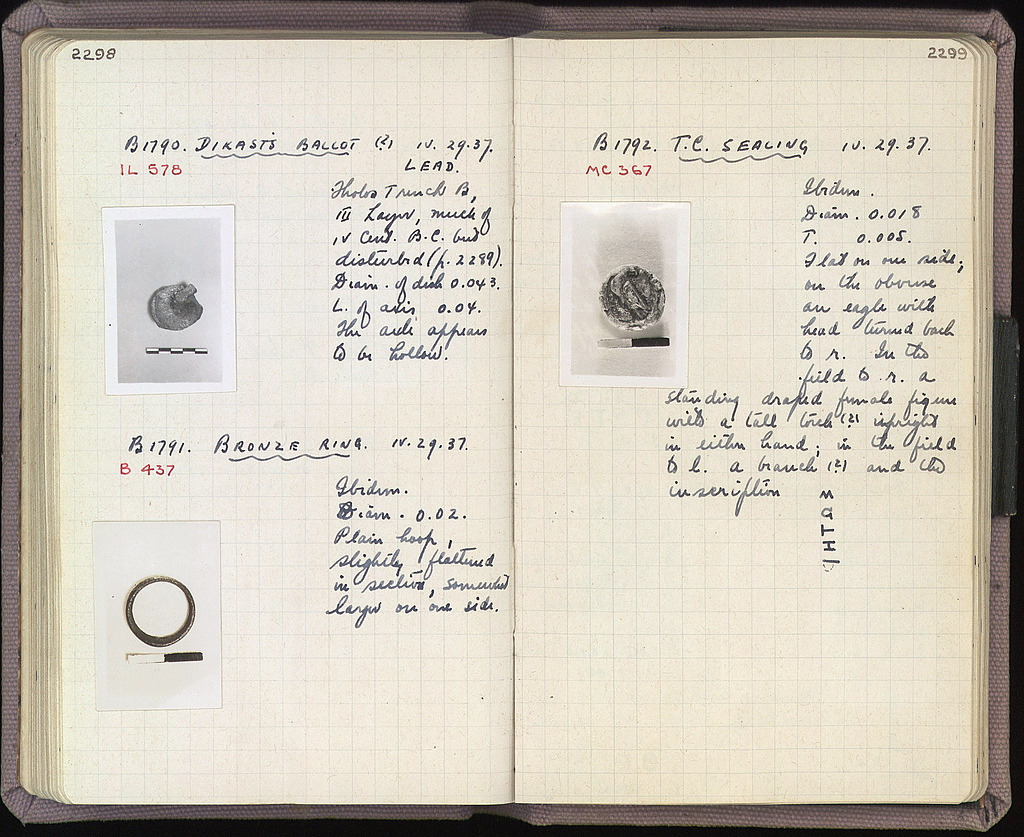 2298
B1790. DIKAST'S BALLOT (?) IV. 29.37.
IL 578
LEAD.
Tholos Trench B,
III Layer, much of
IV Cent. B.C. but
disturbed (p. 2289).
Diam. of disk 0.043.
L. of axis 0.04.
The axle appears
to be hollow.
B1791. BRONZE RING. IV. 29.37.
B 437
Ibidem.
Diam. 0.02.
Plain hoop,
slightly flattened
in section, somewhat
larger on one side.
2299
B1792. T.C. SEALING IV. 29.37.
MC 367
Ibidem.
Diam. 0.018
T. 0.005.
Flat on one side;
on the obverse
an eagle with
head turned back
to r. In the
field to r. a
standing draped female figure
with a tall torch (?) upright
in either hand; in the field
to l. a branch (?) and the
inscription